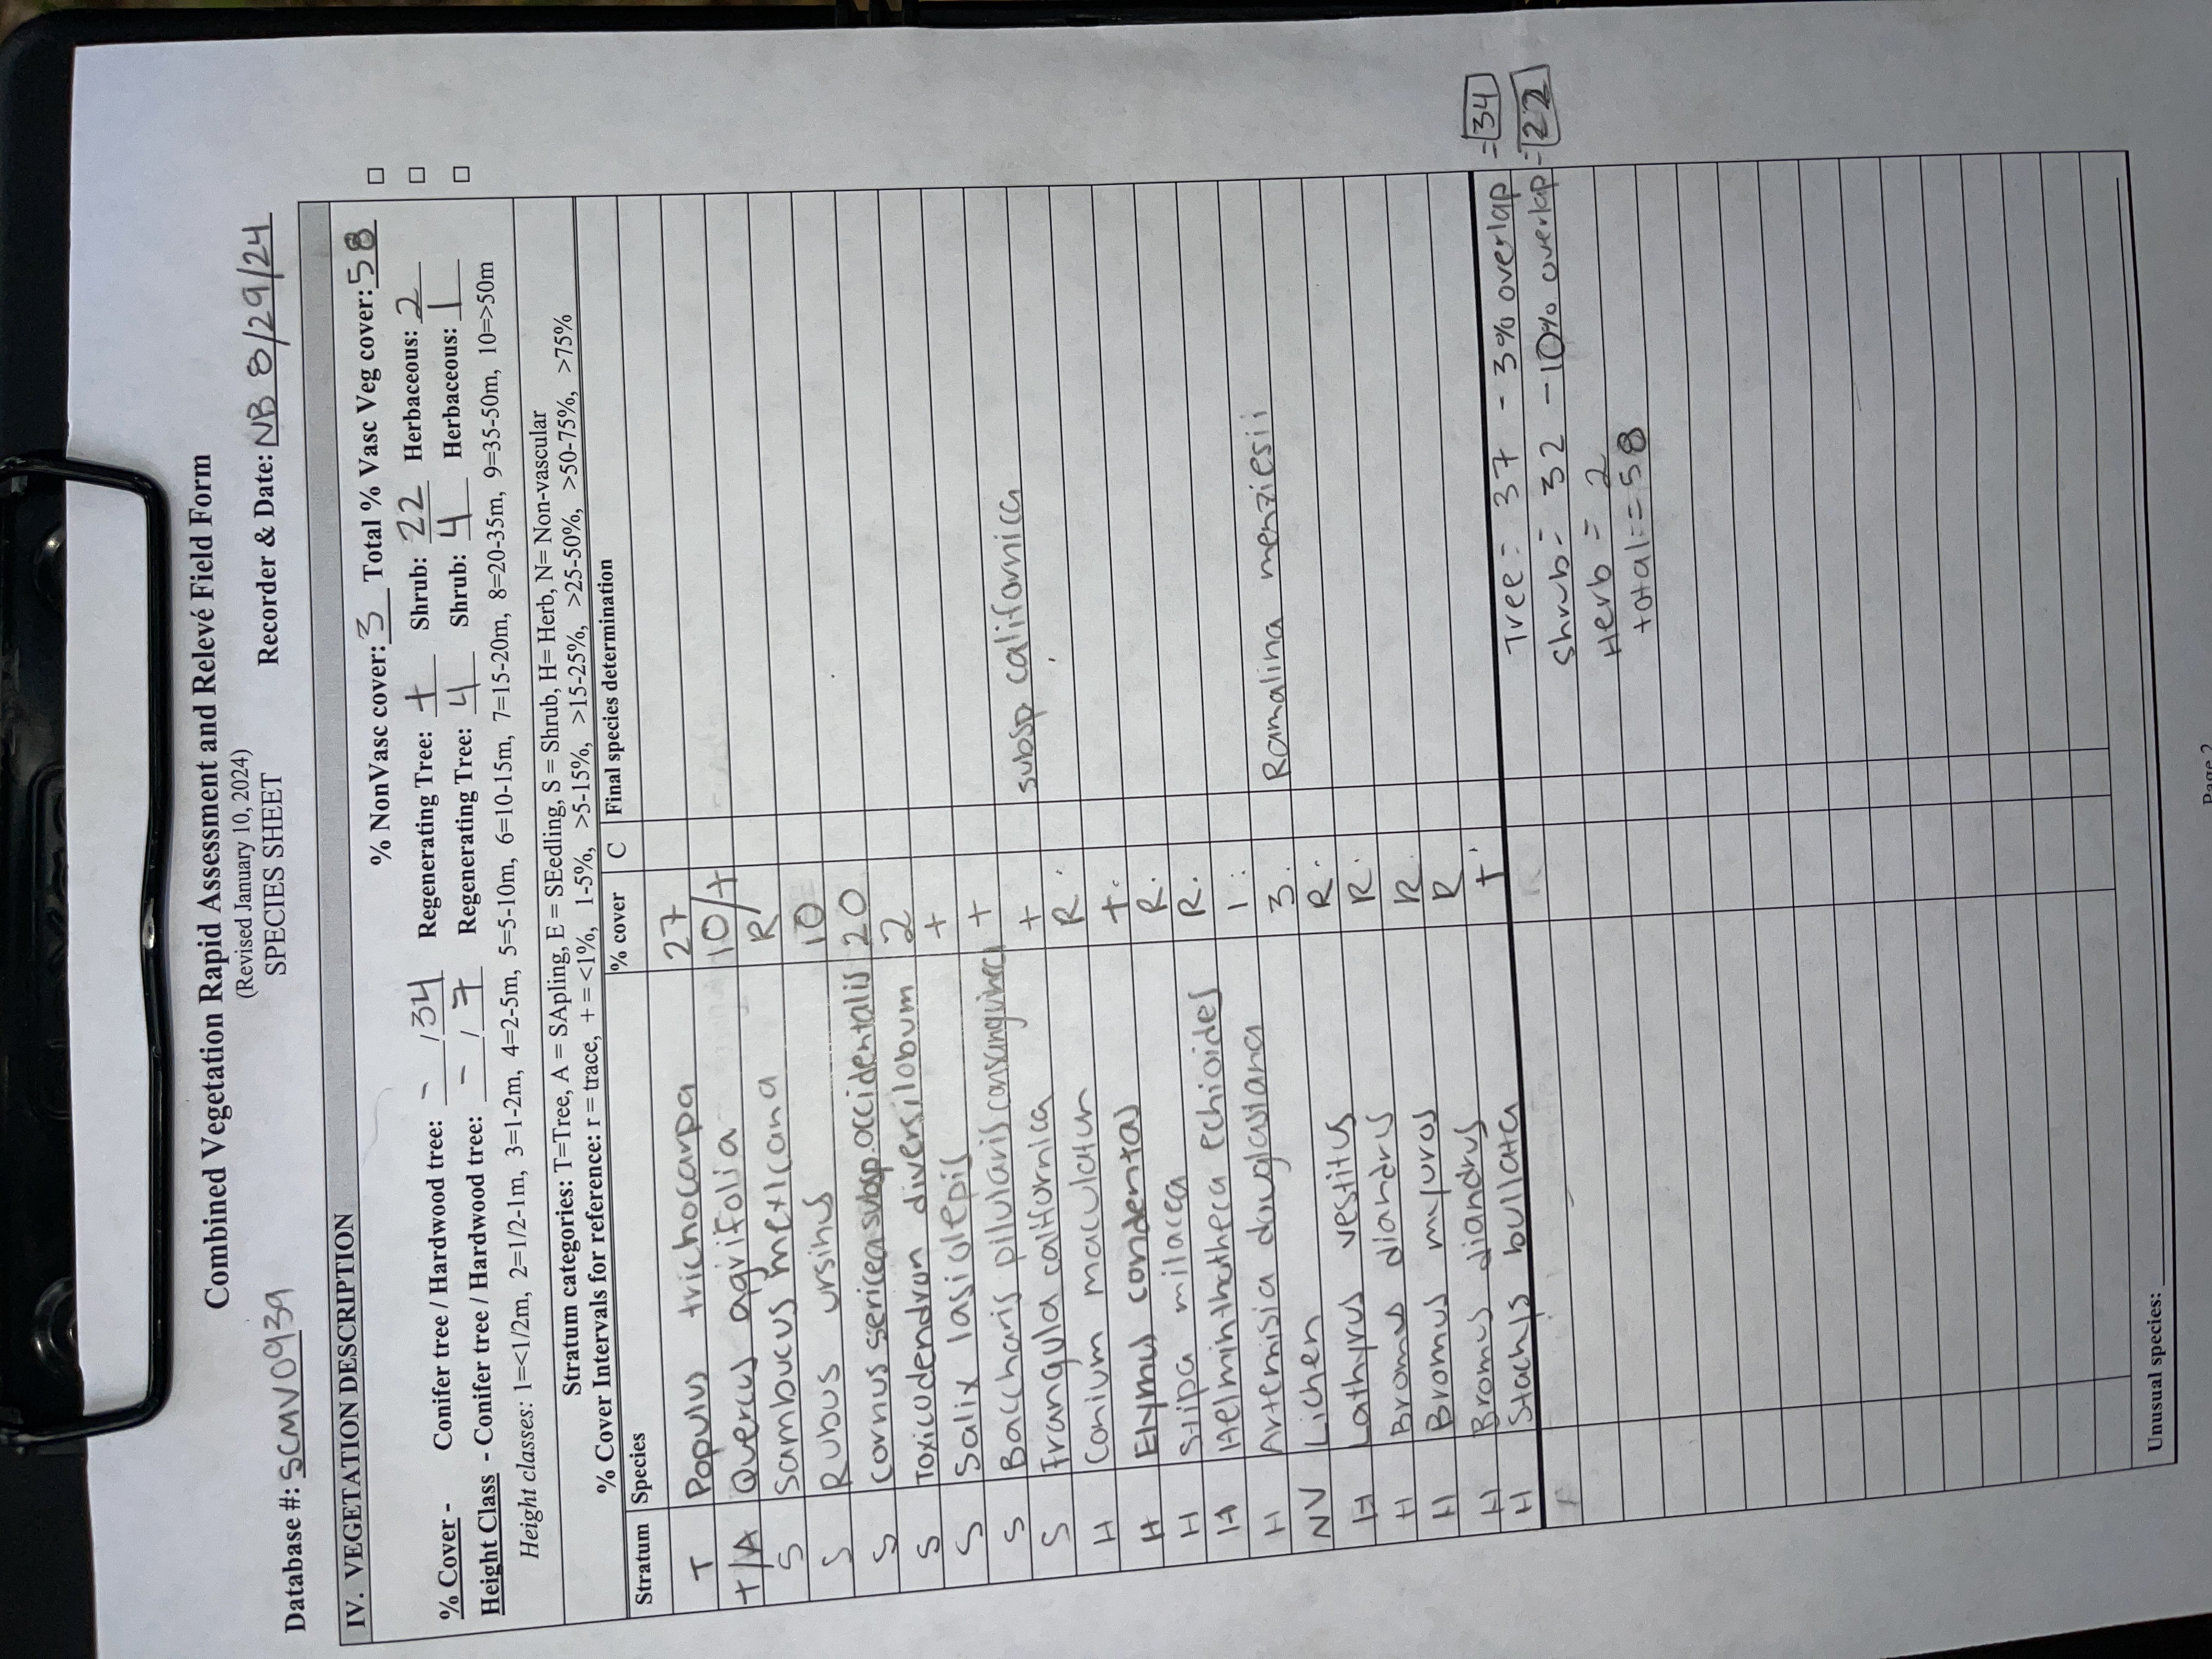 Combined Vegetation Rapid Assessment and Relevé Field Form
(Revised January 10, 2024)
SPECIES SHEET
Database #: SCMV0939 Recorder & Date: NB 8/29/24
IV. VEGETATION DESCRIPTION
% NonVasc cover: 3 Total % Vasc Veg cover: 58 □
% Cover - Conifer tree / Hardwood tree: - / 34 Regenerating Tree: + Shrub: 22 Herbaceous: 2 □
Height Class - Conifer tree / Hardwood tree: - / 7 Regenerating Tree: 4 Shrub: 4 Herbaceous: 1 □
Height classes: 1=<1/2m, 2=1/2-1m, 3=1-2m, 4=2-5m, 5=5-10m, 6=10-15m, 7=15-20m, 8=20-35m, 9=35-50m, 10=>50m
Stratum categories: T=Tree, A = SApling, E = SEedling, S = Shrub, H= Herb, N= Non-vascular
% Cover Intervals for reference: r = trace, + = <1%, 1-5%, >5-15%, >15-25%, >25-50%, >50-75%, >75%
Stratum Species % cover C Final species determination
T Populus trichocarpa 27
T/A Quercus agrifolia 10/+
S Sambucus mexicana R
S Rubus ursinus 10
S Cornus sericea subsp. occidentalis 20
S Toxicodendron diversilobum 2
S Salix lasiolepis +
S Baccharis pilularis consanguinea +
S Frangula californica + subsp californica
H Conium maculatum R.
H Elymus condentas +.
H Stipa milacea R.
H Helminthotheca echioides R.
H Artemisia douglasiana 1.
NV Lichen 3. Ramalina menziesii
H Lathyrus vestitus R.
H Bromus diandrus R.
H Bromus myuros R
H Bromus diandrus R
H Stachys bullata +
Tree = 37 - 3% overlap = 34
Shrub = 32 - 10% overlap = 22
Herb = 2
total = 58
Unusual species:
Page 2